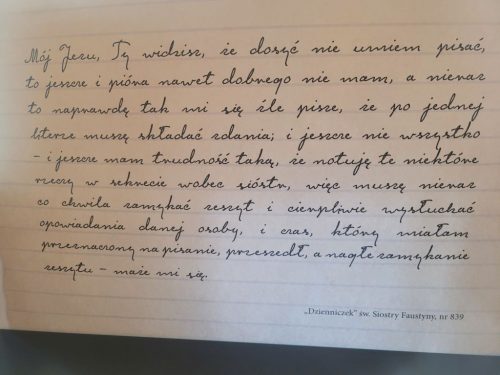 Mój Jezu, Ty widzisz, że dosyć nie umiem pisać,
to jeszcze i pióra nawet dobrego nie mam, a nieraz
to naprawdę tak mi się źle pisze, że po jednej
literze muszę składać zdania; i jeszcze nie wszystko
– i jeszcze mam trudność taką, że notuję te niektóre
rzeczy w sekrecie wobec sióstr, więc muszę nieraz
co chwila zamykać zeszyt i cierpliwie wysłuchać
opowiadania danej osoby, i czas, który miałam
przeznaczony na pisanie, przeszedł, a nagłe zamykanie
zeszytu – maże mi się.
„Dzienniczek” św. Siostry Faustyny, nr 839